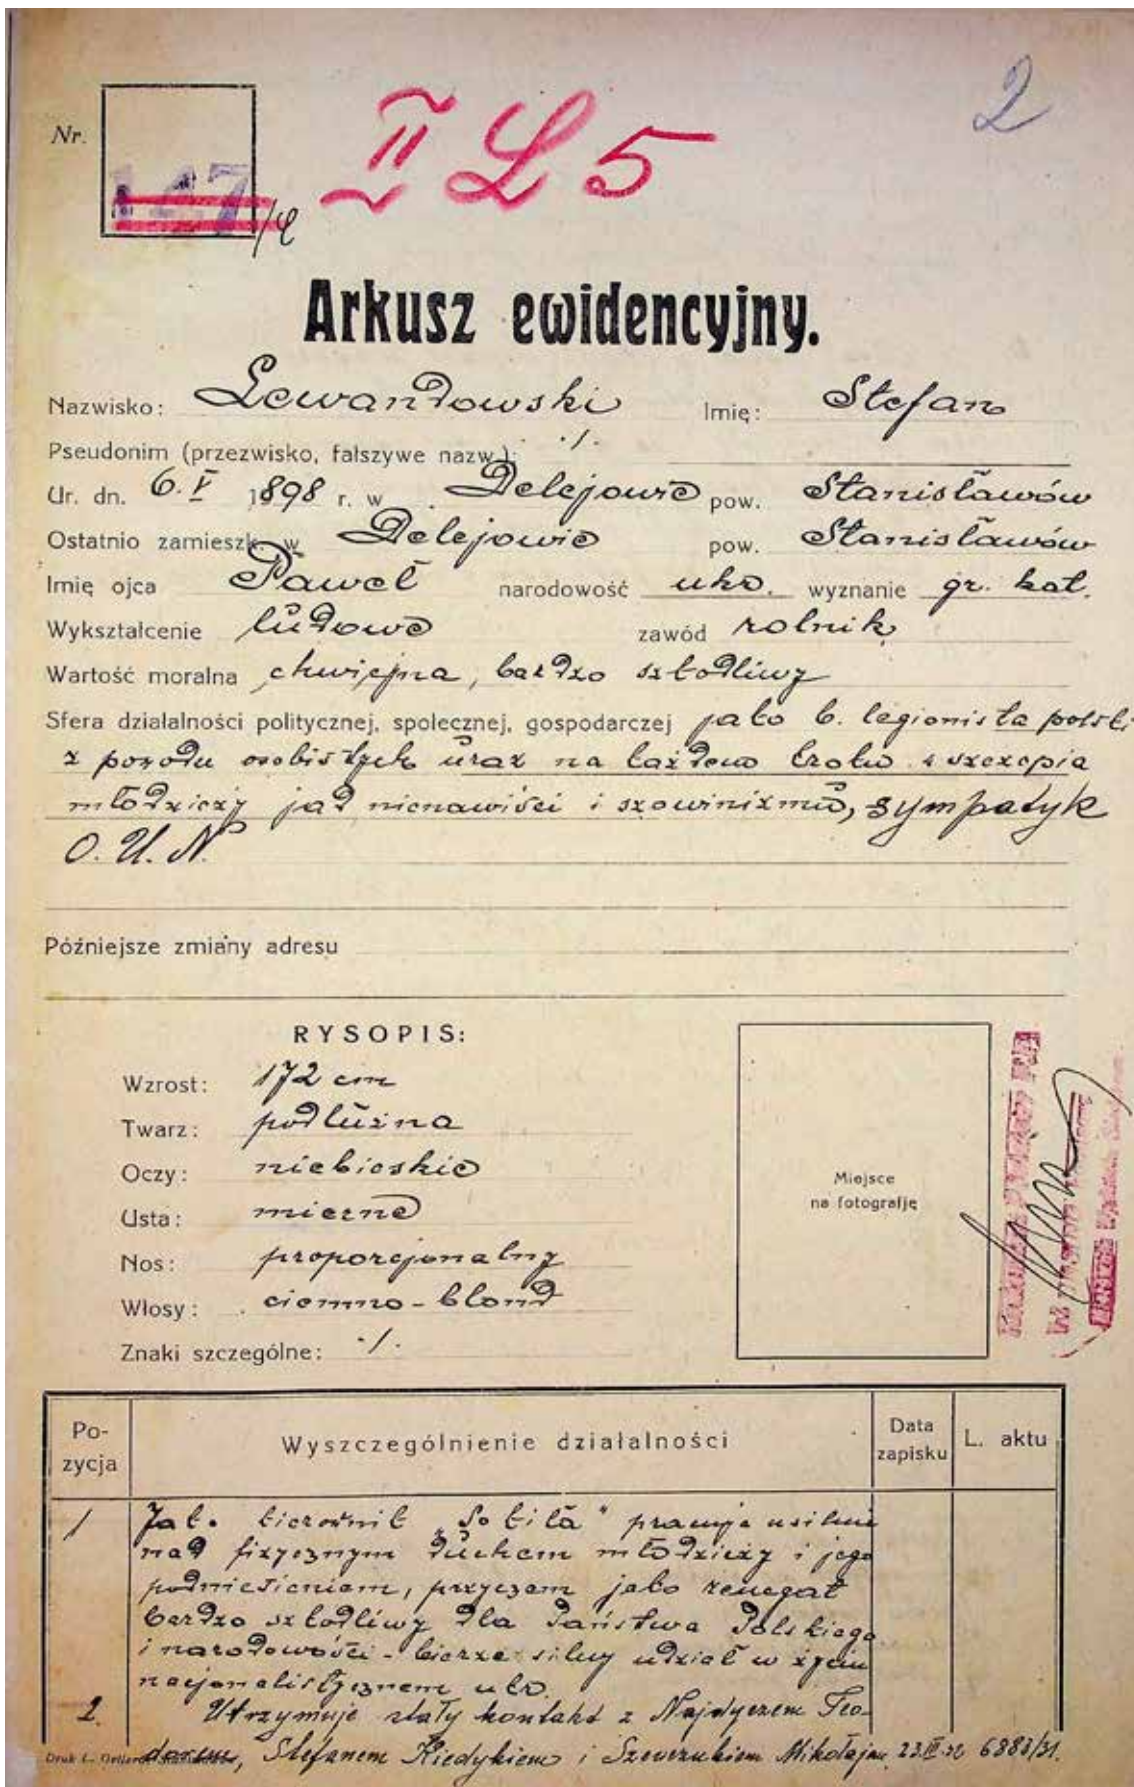 2
Nr. 147/4
II L 5
Arkusz ewidencyjny.
Nazwisko: Lewandowski Imię: Stefan
Pseudonim (przezwisko, fałszywe nazw.): ./.
Ur. dn. 6. V 1898 r. w Delejowie pow. Stanisławów
Ostatnio zamieszk. w Delejowie pow. Stanisławów
Imię ojca Paweł narodowość ukr. wyznanie gr. kat.
Wykształcenie ludowe zawód rolnik
Wartość moralna chwiejna, bardzo szkodliwy
Sfera działalności politycznej, społecznej, gospodarczej jako b. legionista polski
z powodu osobistych uraz na każdem kroku wszczepia
młodzieży jad nienawiści i szowinizmu, sympatyk
O. U. N.
Późniejsze zmiany adresu
RYSOPIS:
Wzrost: 172 cm
Twarz: podłużna
Oczy: niebieskie
Usta: mierne
Nos: proporcjonalny
Włosy: ciemno-blond
Znaki szczególne: ./.
Miejsce
na fotografję
Po-
zycja
Wyszczególnienie działalności
Data
zapisku
L. aktu
1 Jak. kierownik „Sokiła" pracuje usilnie
nad fizycznym duchem młodzieży i jego
podniesieniem, przyczem jako renegat
bardzo szkodliwy dla Państwa Polskiego
i narodowości - bierze silny udział w życiu
nacjonalistycznem ukr.
2. Utrzymuje stały kontakt z Najdyczem Teo-
dorem, Stefanem Kiedykiem i Szewczukiem Mikołajem 23.III.32 6883/31.
Druk L.